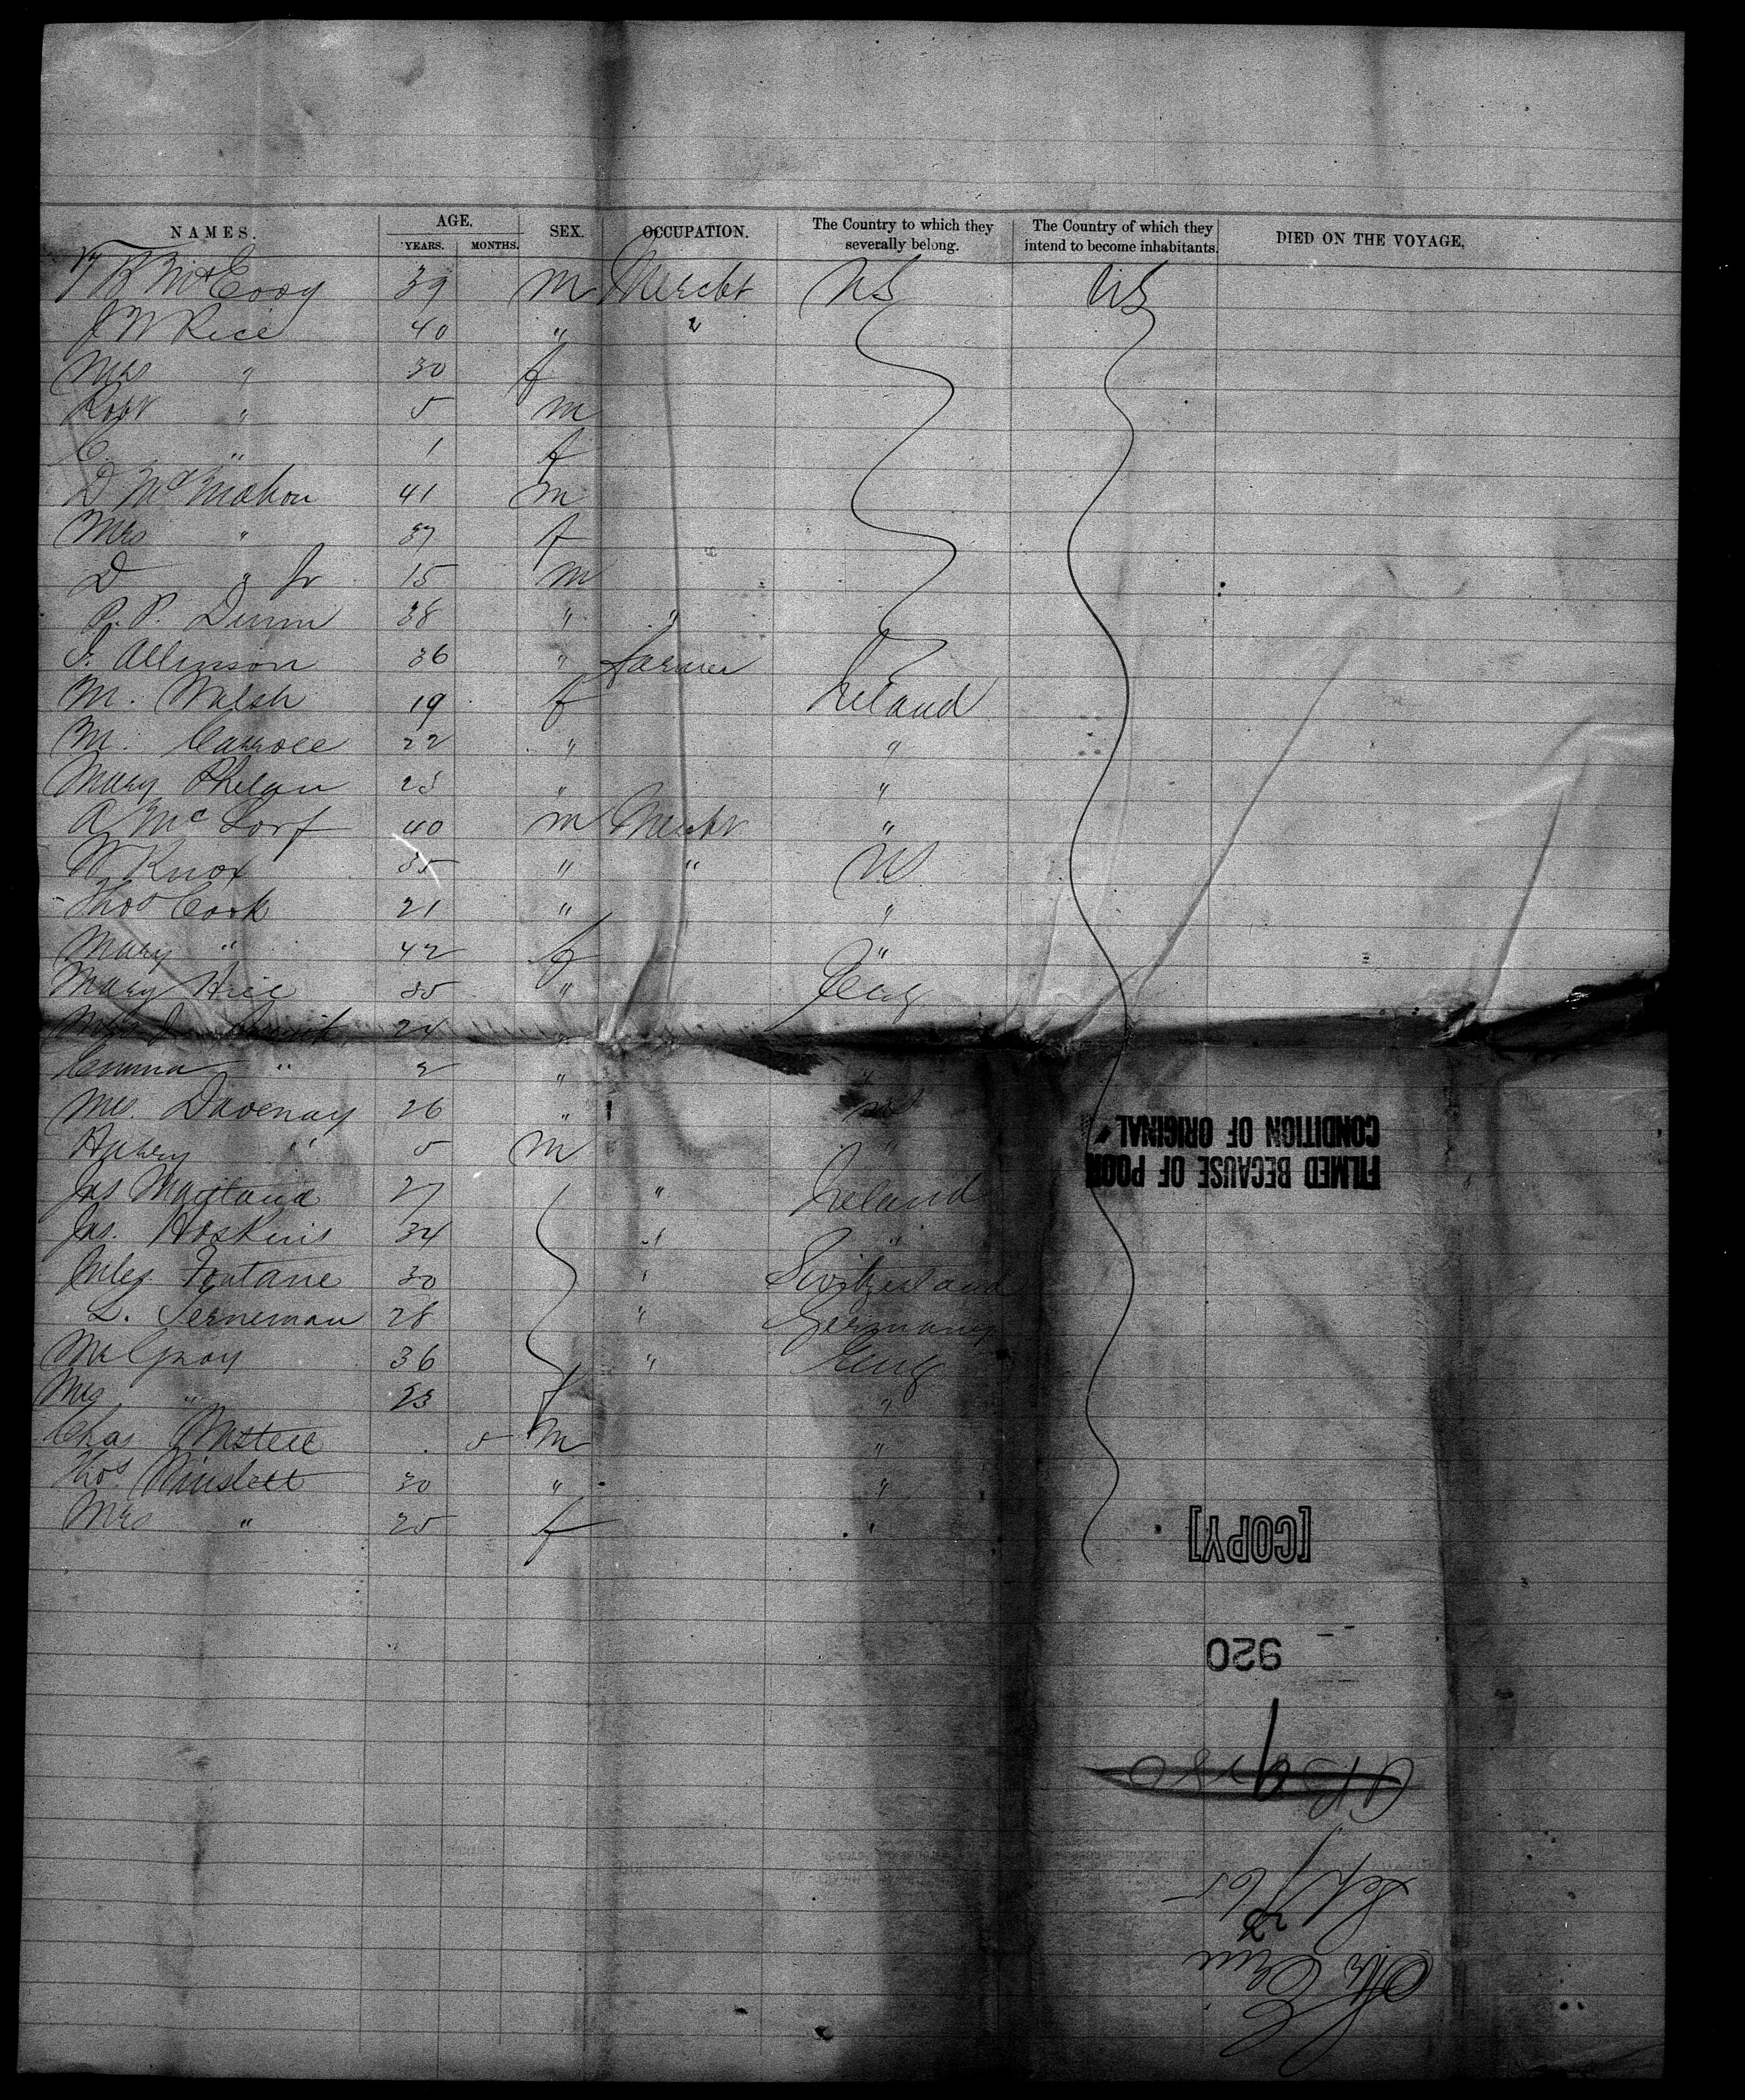 NAMES. AGE. YEARS. MONTHS. SEX. OCCUPATION. The Country to which they severally belong. The Country of which they intend to become inhabitants. DIED ON THE VOYAGE.
39 m Mercht US US
J W Rice 40 " "
Mrs " 30 f
Robt " 5 m
C. " 1 f
D McMahon 41 m
Mrs " 37 f
D " Jr 15 m
P. P. Dunn 38 " "
J. Allinson 36 " farmer
M. Walsh 19 f Ireland
M. Carroll 22 " "
Mary Phelan 23 " "
A Mc 40 m Mercht "
W Knox 35 " " US
Thos Cook 21 " "
Mary " 42 f "
Mary Hill 35 " Eng
24 "
Emma " 2 " "
Mrs. Davenay 26 "
Henry " 5 m "
Jas Maitland 27 " Ireland
Jas. Hoskins 34 " "
Jules Fontane 30 " Switzerland
L. Terneman 28 " Germany
Mr Gray 36 " Eng
Mrs " 23 f "
Chas 5 m "
Thos 30 " "
Mrs " 25 f "
FILMED BECAUSE OF POOR
CONDITION OF ORIGINAL
[COPY]
920